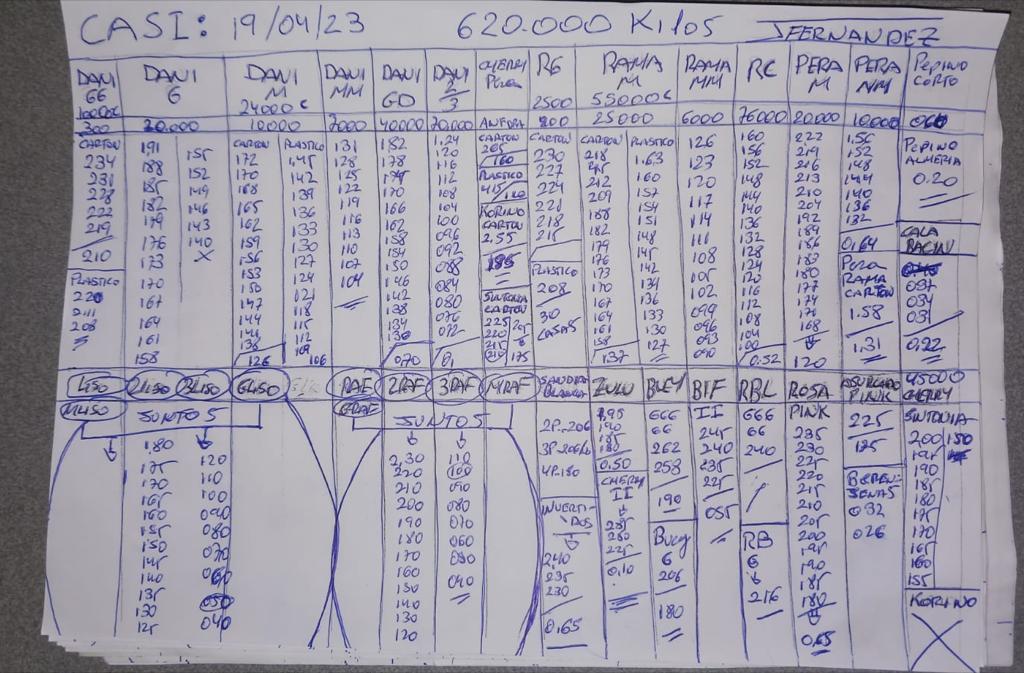 CASI: 19/04/23 620.000 Kilos JFERNANDEZ
DANI GG
300
CARTON
234
231
228
222
219
210
PLASTICO
220
211
208
DANI G
20.000
191
188
185
182
179
176
173
170
167
164
161
158
155
152
149
146
143
140
X
DANI M
24000c
10000
CARTON
172
170
168
165
162
159
156
153
150
147
144
141
138
126
PLASTICO
145
142
139
136
133
130
127
124
121
118
115
112
109
106
DANI MM
7000
131
128
125
122
119
116
113
110
107
104
DANI GD
40000
182
178
174
170
166
162
158
154
150
146
142
138
134
130
070
DANI 2/3
20.000
1,24
120
116
112
108
104
100
096
092
088
084
080
076
072
CHERRY Pera
ANFORA
CARTON
205
160
PLASTICO
415
120
KORINO
CARTON
2.55
185
SINTONIA
CARTON
225
220
215
210
205
175
RG
2500
200
CARTON
230
227
224
221
218
215
PLASTICO
208
30
CASAS
RAMA M
55000c
25000
CARTON
218
215
212
209
188
182
179
176
173
170
167
164
161
158
137
PLASTICO
1.63
160
157
154
151
148
145
142
134
136
133
130
127
RAMA MM
6000
126
123
120
117
114
111
108
105
102
099
096
093
090
RC
76000
160
156
152
148
144
140
136
132
128
124
120
116
112
108
104
100
0.52
PERA M
20.000
222
219
216
213
210
204
192
189
186
183
180
177
174
168
120
PERA MM
10.000
1.56
152
148
144
140
136
132
0,64
Pera
RAMA
CARTON
1.58
1,31
PEPINO CORTO
060
PEPINO
ALMERIA
0.20
CALABACIN
037
034
031
0.22
1LISO 2LISO 3LISO GLISO
MLISO
JUNTOS
1.80
175
170
165
160
155
150
145
140
135
130
125
120
110
100
090
080
070
060
050
040
1RAF 2RAF 3RAF MRAF
GRAF
JUNTOS
2,30
220
210
200
190
180
170
160
150
140
130
120
110
100
090
080
070
060
050
040
SANDIA
BLANCA
2P.206
3P.206
4P.180
INVERTIDOS
240
235
230
0.65
ZULU
195
190
185
180
0.50
CHERRY
II
285
280
225
0,10
BUEY
666
66
262
258
190
Buey
6
205
180
BIF
II
245
240
235
225
055
RBL
666
66
240
RB
6
216
ROSA
PINK
235
230
225
220
215
210
205
200
195
190
185
180
0.65
ASURCADO
PINK
225
185
BERENJENAS
032
026
45000
CHERRY
SINTONIA
200
195
190
185
180
175
170
165
160
155
150
KORINO
X